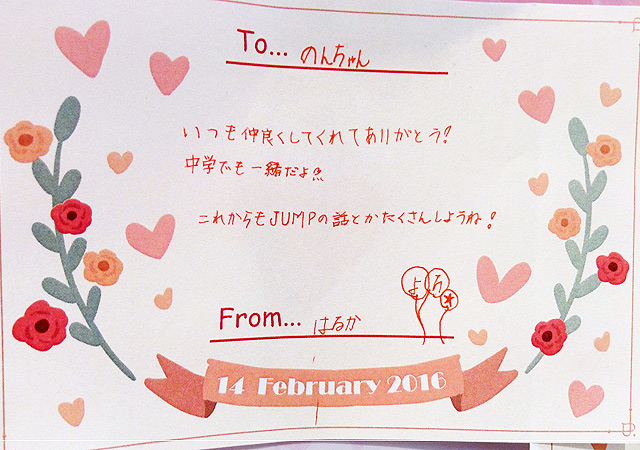 To... のんちゃん
いつも仲良くしてくれてありがとう!
中学でも一緒だよ
これからもJUMPの話とかたくさんしようね!
From... はるか
14 February 2016